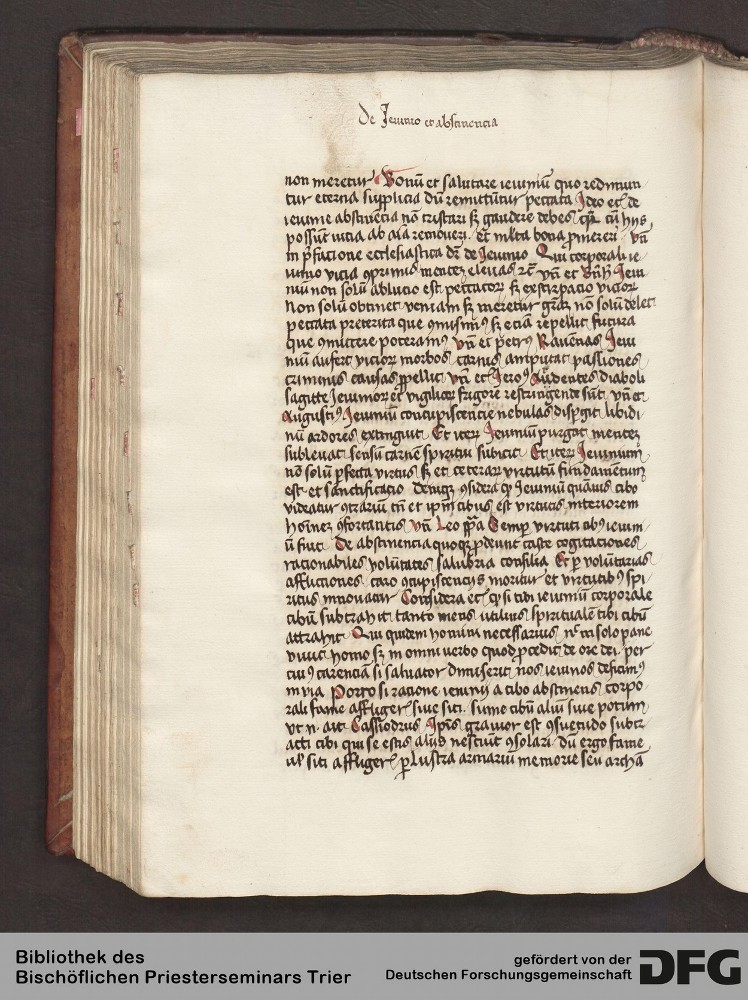 De Jeiunio et abstinencia
non meretur Bonū et salutare ieiuniū quo redimun
tur eterna supplicia dū remittūtur peccata Ideo et de
ieiunie abstinēcia nō tristari sꝫ gaudere debes cū hiis
possūt vicia ab aīa remoueri et mlta bona ꝓmereri vn̄
in p̄facione ecclesiastica dr̄ de Jeiunio Qui corporali ie
iunio vicia ꝯprimis mentez eleuas rc̄ vn̄ et Jeiu
niū non solū ablucio est peccatoꝝ sꝫ exstirpacio vicioꝝ
Non solū obtinet veniam sꝫ meretur gr̄az nō solū delet
peccata preterita que ꝯmisimꝰ sꝫ eciā repellit futura
que ꝯmittere poteramꝰ vn̄ et petrꝰ Rauēnas Jeiu
niū aufert vicioꝝ morbos carnis amputat passiones
criminis causas ꝓpellit vn̄ et Jeroꝰ Ardentes diaboli
sagitte Jeiunioꝝ et vigiliaꝝ frigore restringende sūt vn̄ et
Augustiꝰ Jeiuniū concupiscencie nebulas disꝑgit libidi
nū ardores extinguit Et iteꝝ Jeiuniū purgat mentez
subleuat sensū carnē spiritui subicit Et iteꝝ Jeiunium
nō solū ꝑfecta virtus sꝫ et ceteraꝝ virtutū fundamentum
est et sanctificacio Deniqꝫ ꝯsidera qꝫ Jeiuniū quāuis cibo
videatur ꝯtrariū tn̄ et ip̄m cibus est virtutis interiorem
hoīnez ꝯfortantis vn̄ Leo pp̄a Semper virtuti cibꝰ ieiuni
ū fuit De abstinencia quoqꝫ ꝓdeunt caste cogitaciones
racionabiles volūtates salubria consilia Et ꝑ volūtarias
afflictiones caro ꝯcupiscencijs moritur et virtutibꝰ spi
ritus innouatur Considera et qꝫ si tibi ieiuniū corporale
cibū subtrahit tanto meus vtilius spiritualē tibi cibū
attrahit Qui quidem homini necessarius nō in solo pane
viuit homo sꝫ in omni verbo quod ꝓcedit de ore dei per
cuiꝰ carenciā si saluator dimiserit nos ieiunos deficimꝰ
in via Porro si racione ieiunij a cibo abstinens corpo
rali fame affligeris siue siti sume cibū aliū siue potum
vt n̄ ait Cassiodrus Ip̄is grauior est ꝯsuetudo subtr
acti cibi qui se escis alijs nesciūt ꝯsolari dū ergo fame
uel siti affligeris ꝑlustra armariū memorie seu archā
Bibliothek des
Bischöflichen Priesterseminars Trier
gefördert von der
Deutschen Forschungsgemeinschaft
DFG